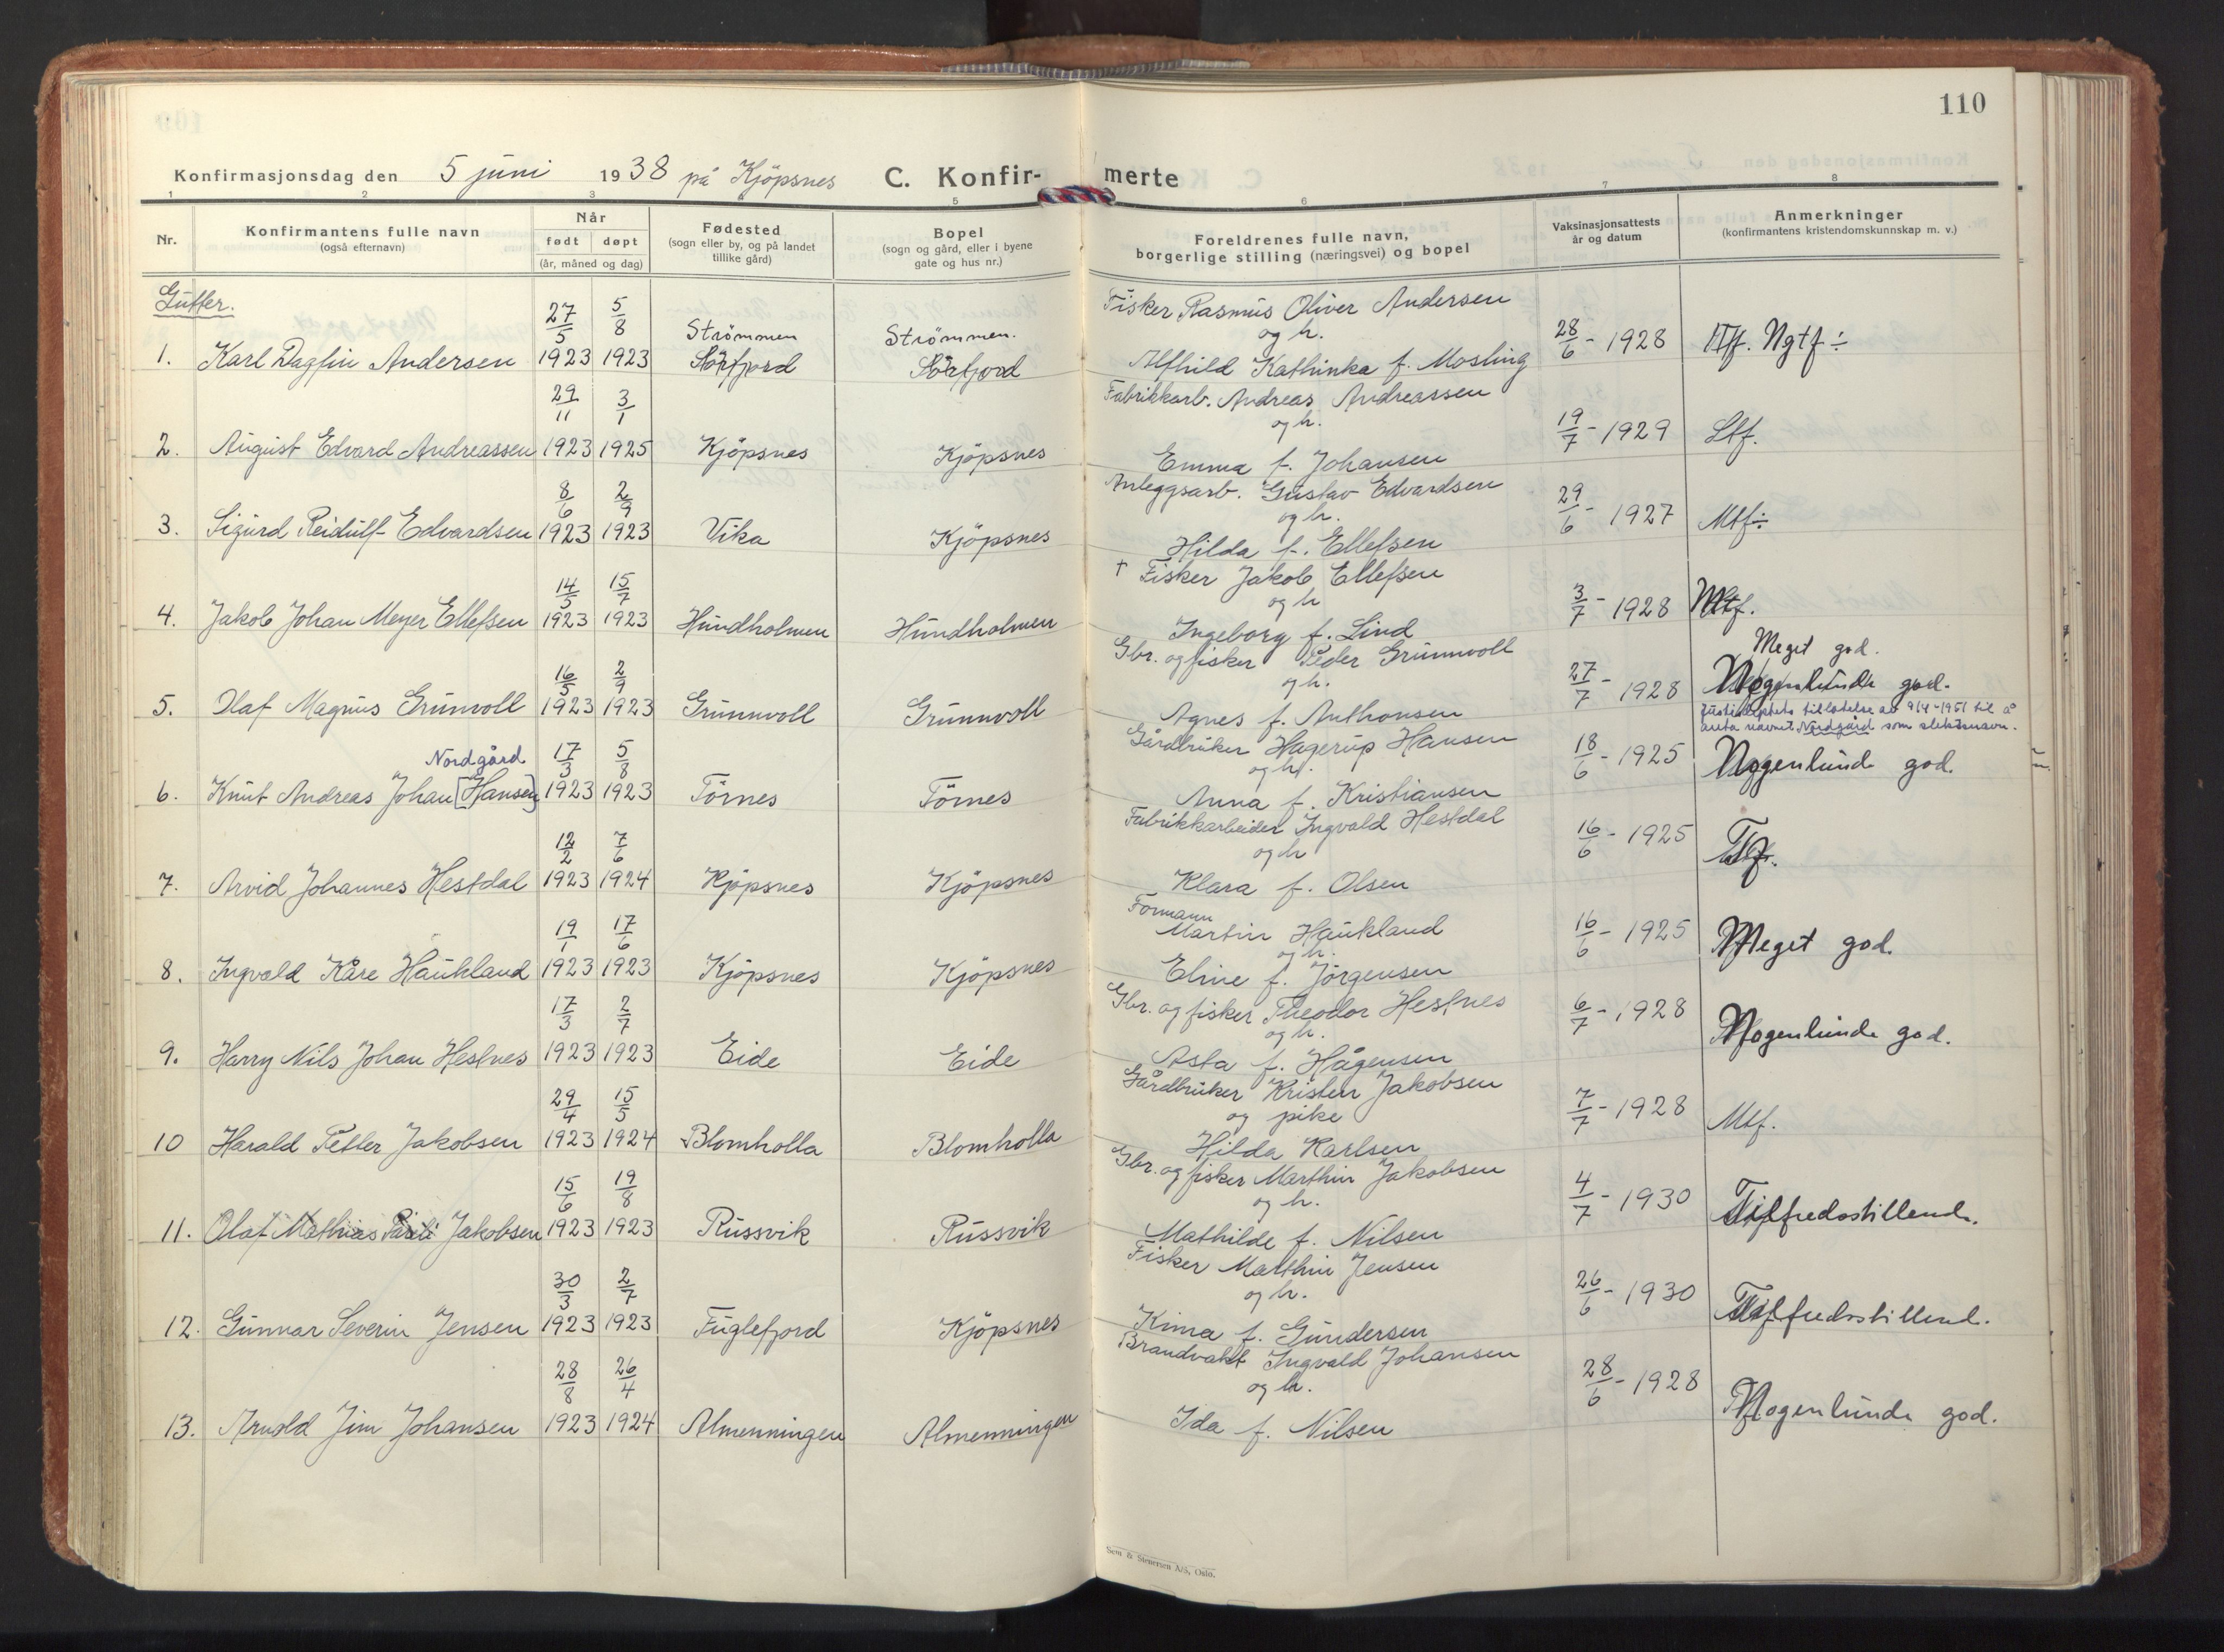 110
Konfirmasjonsdag den 5 juni 1938 på Kjöpsnes C. Konfir- merte
1 2 3 5 6 7 8
Nr. Konfirmantens fulle navn (også efternavn) Når født døpt (år, måned og dag) Fødested (sogn eller by, og på landet tillike gård) Bopel (sogn og gård, eller i byene gate og hus nr.) Foreldrenes fulle navn, borgerlige stilling (næringsvei) og bopel Vaksinasjonsattests år og datum Anmerkninger (konfirmantens kristendomskunnskap m. v.)
Gutter.
1. Karl Dagfin Andersen 27/5 1923 5/8 1923 Strömmen Sörfjord Strömmen. Sörfjord Fisker Rasmus Oliver Andersen og h. Alfhild Kathinka f. Mosling 28/6 - 1928 Ngtf ÷
2. August Edvard Andreassen 29/11 1923 3/1 1925 Kjöpsnes Kjöpsnes Fabrikkarb. Andreas Andreassen og h. Emma f. Johansen 19/7 - 1929 Stf.
3. Sigurd Reidulf Edvardsen 8/6 1923 2/9 1923 Vika Kjöpsnes Anleggsarb. Gustav Edvardsen og h. Hilda f. Ellefsen 29/6 - 1927 Mtf ÷
4. Jakob Johan Meyer Ellefsen 14/5 1923 15/7 1923 Hundholmen Hundholmen † Fisker Jakob Ellefsen og h Ingeborg f. Lind 3/7 - 1928 Mtf.
Meget god.
5. Olaf Magnus Grunnvoll 16/5 1923 2/9 1923 Grunnvoll Grunnvoll Gbr. og fisker Peder Grunnvoll og h. Agnes f. Anthonsen 27/7 - 1928 Nogenlunde god.
Justisdeptets tillatelse av 9/4-1951 til å
anta navnet Nordgård som slektsnavn.
6. Knut Andreas Johan [Hansen] Nordgård 17/3 1923 5/8 1923 Törnes Törnes Gårdbruker Hagerup Hansen og h. Anna f. Kristiansen 18/6 - 1925 Nogenlunde god.
7. Arvid Johannes Hestdal 12/2 1923 7/6 1924 Kjöpsnes Kjöpsnes Fabrikkarbeider Ingvald Hestdal og h Klara f. Olsen 16/6 - 1925 Tf.
8. Ingvald Kåre Haukland 19/1 1923 17/6 1923 Kjöpsnes Kjöpsnes Formann Martin Haukland og h. Eline f. Jörgensen 16/6 - 1925 Meget god.
9. Harry Nils Johan Hestnes 17/3 1923 2/7 1923 Eide Eide Gbr. og fisker Theodor Hestnes og h. Asta f. Hågensen 6/7 - 1928 Nogenlunde god.
10 Harald Petter Jakobsen 29/4 1923 15/5 1924 Blomholla Blomholla Gårdbruker Kristen Jakobsen og pike Hilda Karlsen 7/7 - 1928 Mtf.
11. Olaf Mathias Jakobsen 15/6 1923 19/8 1923 Russvik Russvik Gbr. og fisker Marthin Jakobsen og h. Mathilde f. Nilsen 4/7 - 1930 Tilfredsstillende.
12. Gunnar Severin Jensen 30/3 1923 2/7 1923 Fuglefjord Kjöpsnes Fisker Marthin Jensen og h. Kima f. Gundersen 26/6 - 1930 Tilfredsstillend.
13. Arnold Jim Johansen 28/8 1923 26/4 1924 Almenningen Almenningen Brandvakt Ingvald Johansen og h. Ida f. Nilsen 28/6 - 1928 Nogenlunde god.
Sem & Stenersen A/S, Oslo.